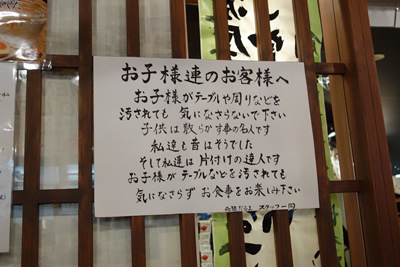 お子様連のお客様へ
お子様がテーブルや周りなどを
汚されても 気になさらないで下さい
子供は散らかす事の名人です
私達も昔はそうでした
そして私達は 片付けの達人です
お子様が テーブルなどを 汚されても
気になさらず お食事を お楽しみ下さい
スタッフ一同